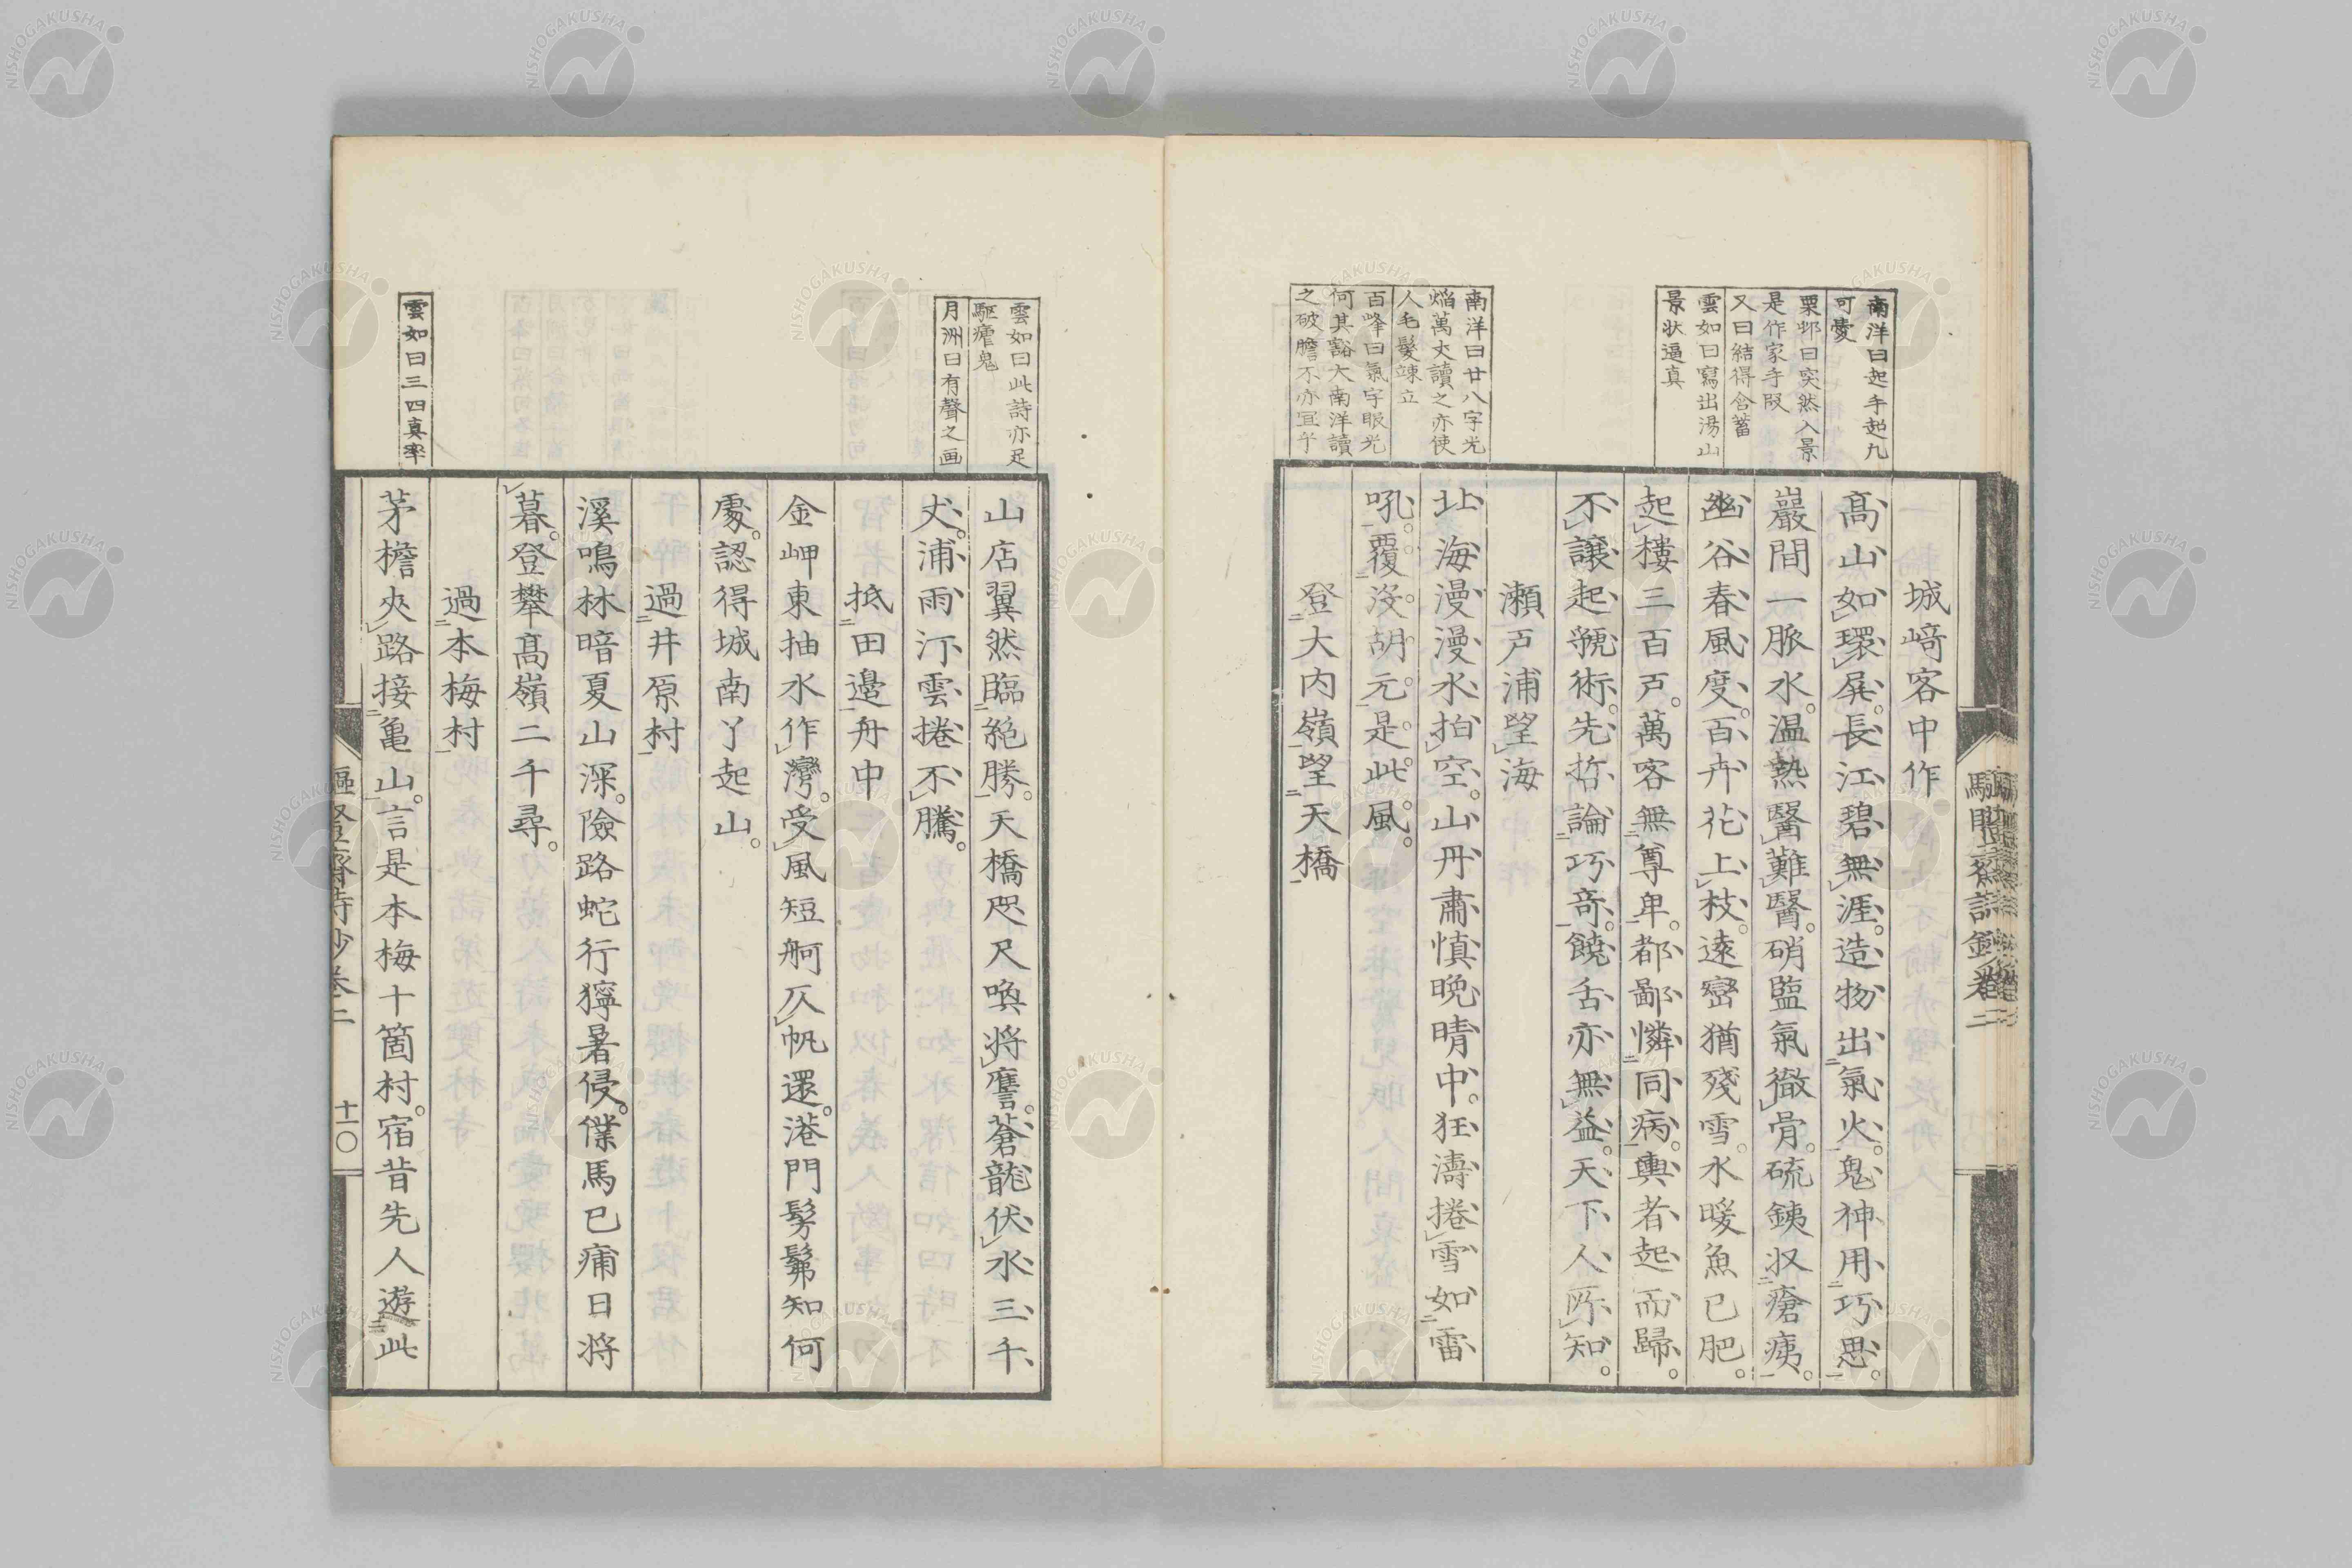 南洋曰起手起凡
可愛
栗邨曰突然入景
是作家手段
又曰結得含蓄
雲如曰寫出湯山
景状逼真
南洋曰廿八字光
焔萬丈讀之亦使
人毛髮竦立
百峰曰氣字眼光
何其豁大南洋讀
之破膽不亦宜乎
城﨑客中作
髙山如環屏長江碧無涯造物出氣火鬼神用巧思
巖間一脈水温熱醫難醫硝監氣徹骨硫銕収瘡痍
幽谷春風度百卉花上枝遠巒猶殘雪水暖魚已肥
起樓三百戸萬客無尊卑都鄙憐同病輿者起而歸
不讓起虢術先哲論巧竒饒舌亦無益天下人所知
瀬戸浦望海
北海漫漫水拍空山丹肅慎晩晴中狂濤捲雪如雷
吼覆沒胡元是此風
登大内嶺望天橋
雲如曰此詩亦足
駆瘧鬼
月洲曰有聲之画
雲如曰三四真率
山店翼然臨絶勝天橋咫尺喚将譍蒼龍伏水三千
丈浦雨汀雲捲不騰
抵田邉舟中
金岬東抽水作灣受風短舸仄帆還港門髣髴知何
處認得城南丫起山
過井原村
溪鳴林暗夏山深險路蛇行獰暑侵僕馬已痡日将
暮登攀髙嶺二千尋
過本梅村
茅檐夾路接亀山言是本梅十箇村宿昔先人遊此
十〇